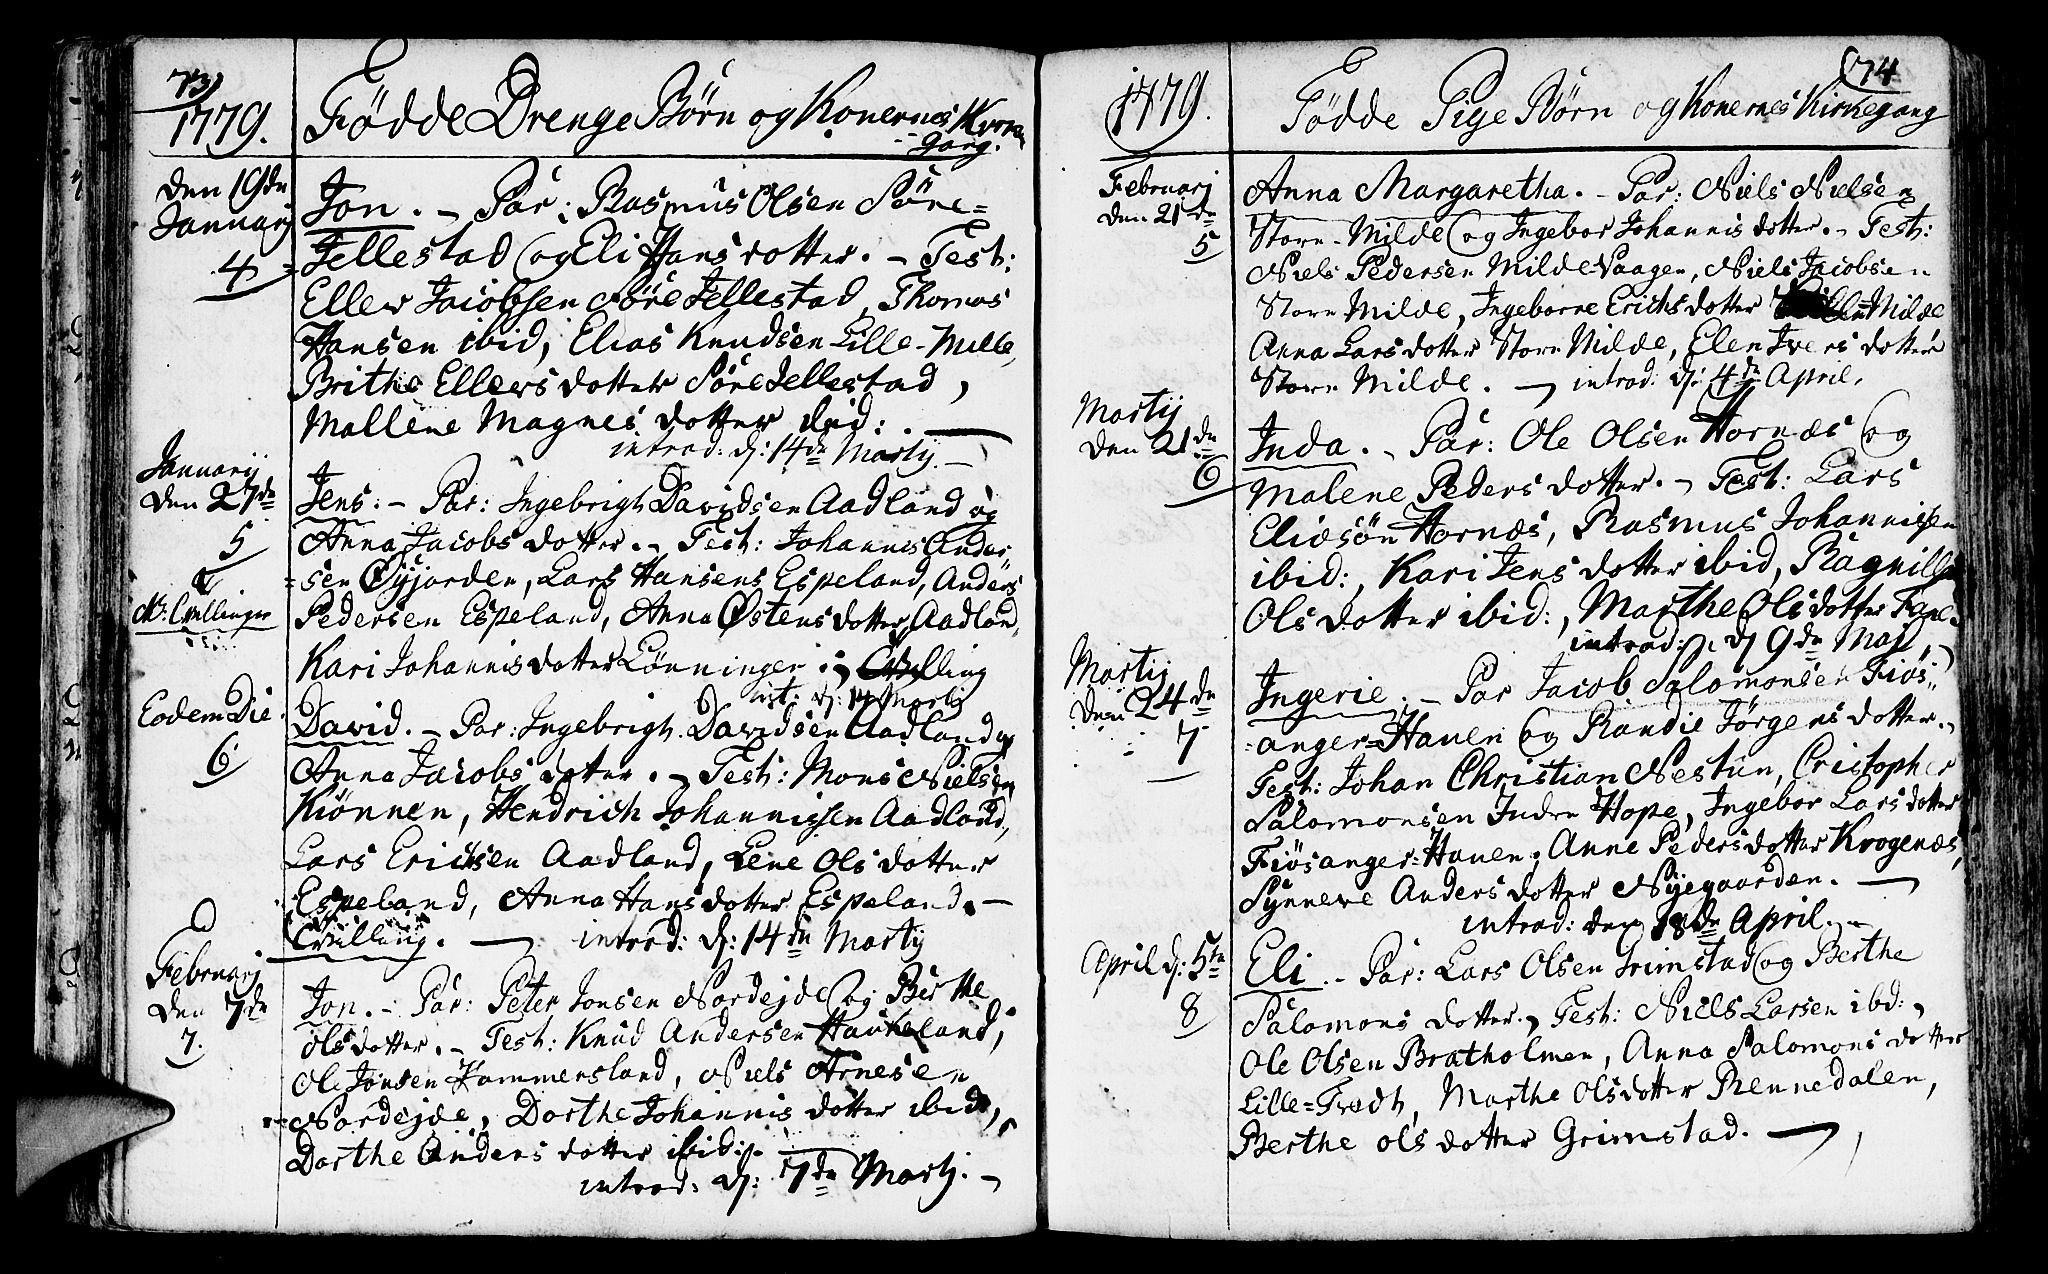 73
1779. Fødde Drenge Børn og Konernes Kirke
gang.
Den 19de
Januarij
4
Jon. - Par: Rasmus Olsen Søre=
=Jellestad og Eli Hansdotter. - Test:
Eller Jacobsen Søre Jellestad, Thomas
Hansen ibid, Elias Knudsen Lille-Milde,
Brithe Ellersdotter Søre Jellestad,
Mallene Magnesdotter ibid:. -
introd: d: 14de Martij. -
Januarij
den 27de
5
Jens. - Par: Ingebrigt Davidsen Aadland og
Anna Jacobsdotter. - Test: Johannis Ander
=sen Øyjorden, Lars Hansens Espeland, Anders
NB: Tvillinger
Pedersen Espeland, Anna Østensdotter Aadland,
Kari Johannisdotter Lønninger. - Tvilling
int: d: 14 Martij
Eodem Die.
6
David. - Par: Ingebrigt Davidsen Aadland og
Anna Jacobsdotter. - Test: Mons Nielsen
Kiønnen, Hendrich Johannissen Aadland,
Lars Ericksen Aadland, Lene Olsdotter
Espeland, Anna Hansdotter Espeland. -
Tvilling. - introd: d: 14de Martij
Februarij
den 7de
7.
Jon. - Par: Peter Jonsen Nordejde og Berthe
Olsdotter. - Test: Knud Andersen Haukeland,
Ole Jonsen Hammersland, Niels Arnesen
Nordejde, Dorthe Johannisdotter ibid,
Dorthe Andersdotter ibid:. -
introd: d: 7de Martj. -
74
1779. Fødde Pige Børn og Konernes Kirkegang
Februarj
den 21de
5
Anna Margaretha. - Par: Niels Nielsen
Store-Milde og Ingebor Johannisdotter. - Test:
Niels Pedersen Milde-Vaagen, Niels Jacobsen
Store Milde, Ingeborre Ericksdotter Lille-Milde
Anna Larsdotter Store Milde, Elen Iversdotter
Store Milde. - introd: d: 4de April.
Martij
den 21de
6
Inda. - Par: Ole Olsen Hornæs og
Malene Pedersdotter. - Test: Lars
Eliæsøn Hornæs, Rasmus Johannissen
ibid:, Kari Jensdotter ibid, Ragnille
Olsdotter ibid:, Marthe Olsdotter Fane.
introd: d 9de Maj
Martij
Den 24de
7
Ingerie. - Par Jacob Salomonsen Fiøs=
=anger=Hauen og Randie Jørgensdotter. -
Test: Johan Christian Nestun, Cristopher
Salomonsen Indre Hope, Ingebor Larsdotter
Fiøsanger=Hauen, Anne Pedersdotter Krogenæs,
Synneve Andersdotter Nyegaarden. -
introd: den 18de April. -
April d: 5te
8
Eli. - Par: Lars Olsen Grimstad og Berthe
Salomonsdotter. - Test: Niels Larsen ibd:,
Ole Olsen Bratholmen, Anna Salomonsdotter
Lille=Tvedt, Marthe Olsdotter Rennedalen,
Berthe Olsdotter Grimstad. -